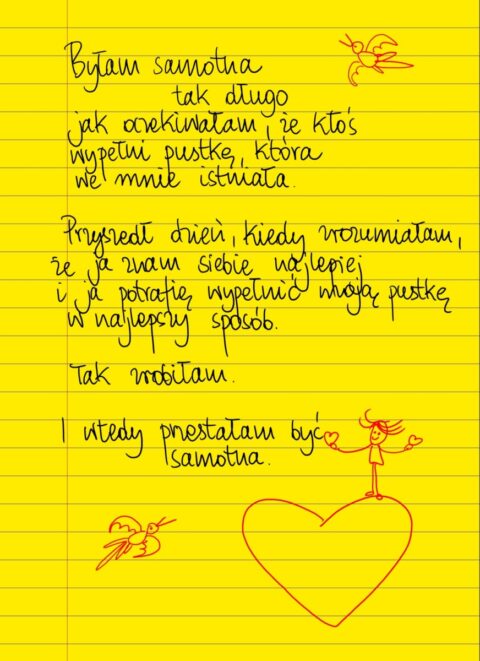 Byłam samotna
tak długo
jak oczekiwałam, że ktoś
wypełni pustkę, która
we mnie istniała.
Przyszedł dzień, kiedy zrozumiałam,
że ja znam siebie najlepiej
i ja potrafię wypełnić moją pustkę
w najlepszy sposób.
Tak zrobiłam.
I wtedy przestałam być
samotna.